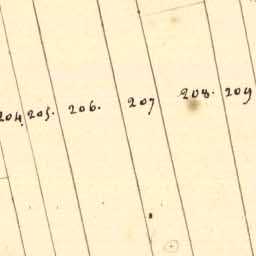 204. 205. 206. 207 208. 209